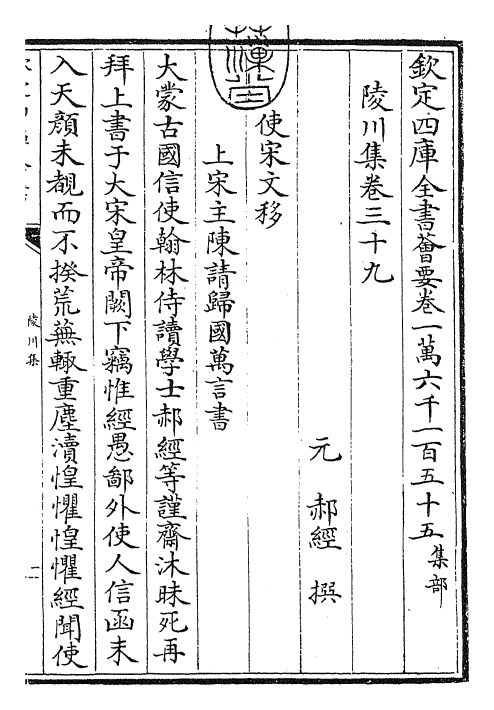 欽定四庫全書薈要卷一萬六千一百五十五集部
陵川集卷三十九
元 郝經 撰
使宋文移
上宋主陳請歸國萬言書
大蒙古國信使翰林侍讀學士郝經等謹齋沐昧死再
拜上書于大宋皇帝闕下竊惟經愚鄙外使人信函未
入天顔未覩而不揆荒蕪輙重塵瀆惶懼惶懼經聞使
陵川集